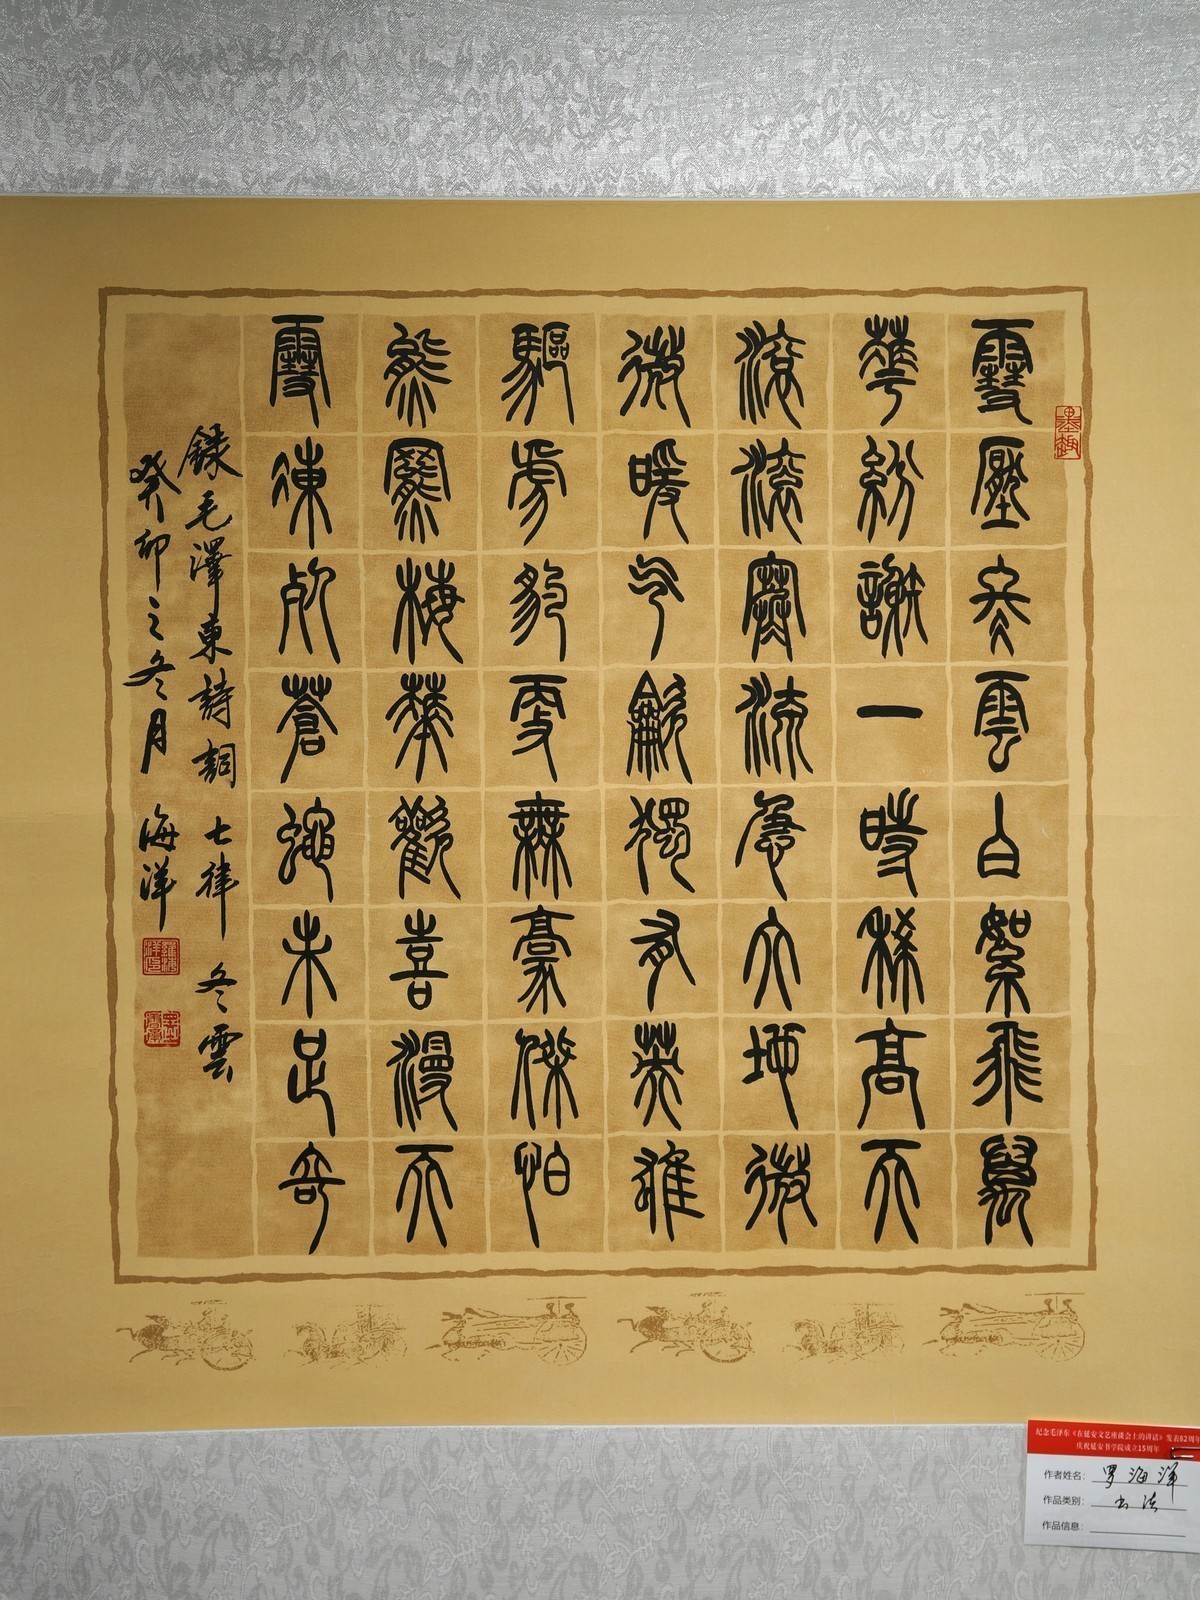 墨趣
雪壓冬雲白絮飛萬
華紛謝一時稀高天
滾滾寒流急大地微
微暖气龡獨有英雄
驅虎豹更無豪傑怕
熊羆梅華歡喜漫天
雪凍死蒼蠅未足奇
錄毛澤東詩詞七律 冬雲
癸卯之冬月 海洋
羅海洋印
纪念毛泽东《在延安文艺座谈会上的讲话》发表82周年
庆祝延安书学院成立15周年
作者姓名:罗海洋
作品类别:书法
作品信息: